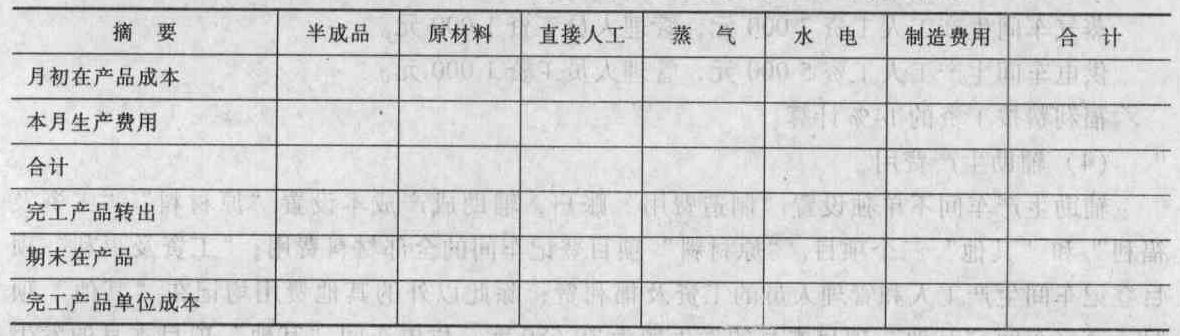 摘 要 半成品 原材料 直接人工 蒸 气 水 电 制造费用 合 计
月初在产品成本
本月生产费用
合计
完工产品转出
期末在产品
完工产品单位成本